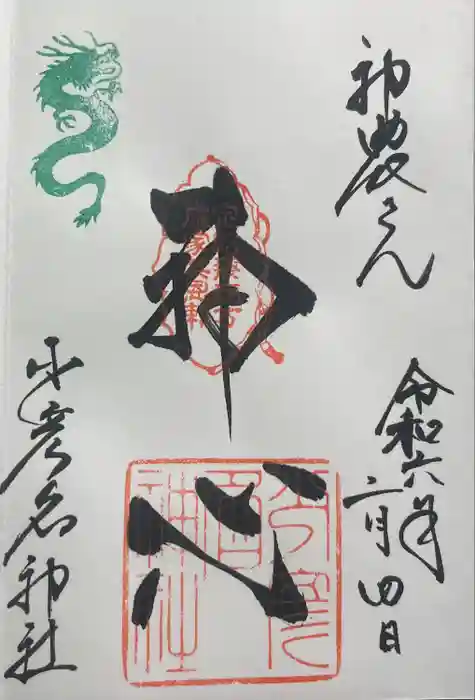 神農さん
令和六年
二月四日
心
少彦名神社
少彦名神社